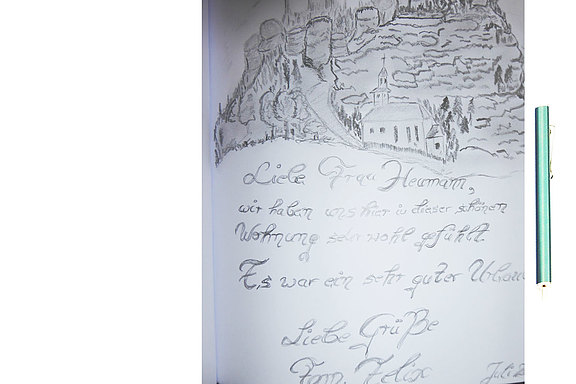 Liebe Frau Heumann,
wir haben uns hier in dieser schönen
Wohnung sehr wohl gefühlt.
Es war ein sehr guter
Liebe Grüße
Fam. Felix
Juli